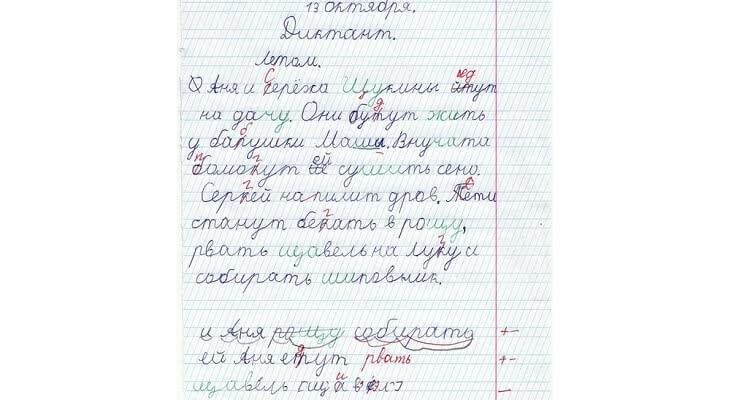 13 октября.
Диктант.
Летом.
Аня и Серёжа Щукины едут
на дачу. Они бутут жить
у бапушки Маши. Внучата
бомокут ей сушить сено.
Серкей напилит дров. Тети
станут бекать в рощу,
рвать щавель на луку и
собирать шиповник.
и Аня рощу собирать +-
ей Аня етут рвать +-
щавель -